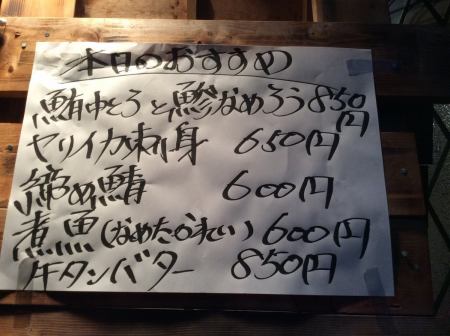 本日のおすすめ
鮪中とろと鯵なめろう850円
ヤリイカ刺身 650円
締め鯖 600円
煮魚(なめたかれい) 600円
牛タンバター 850円